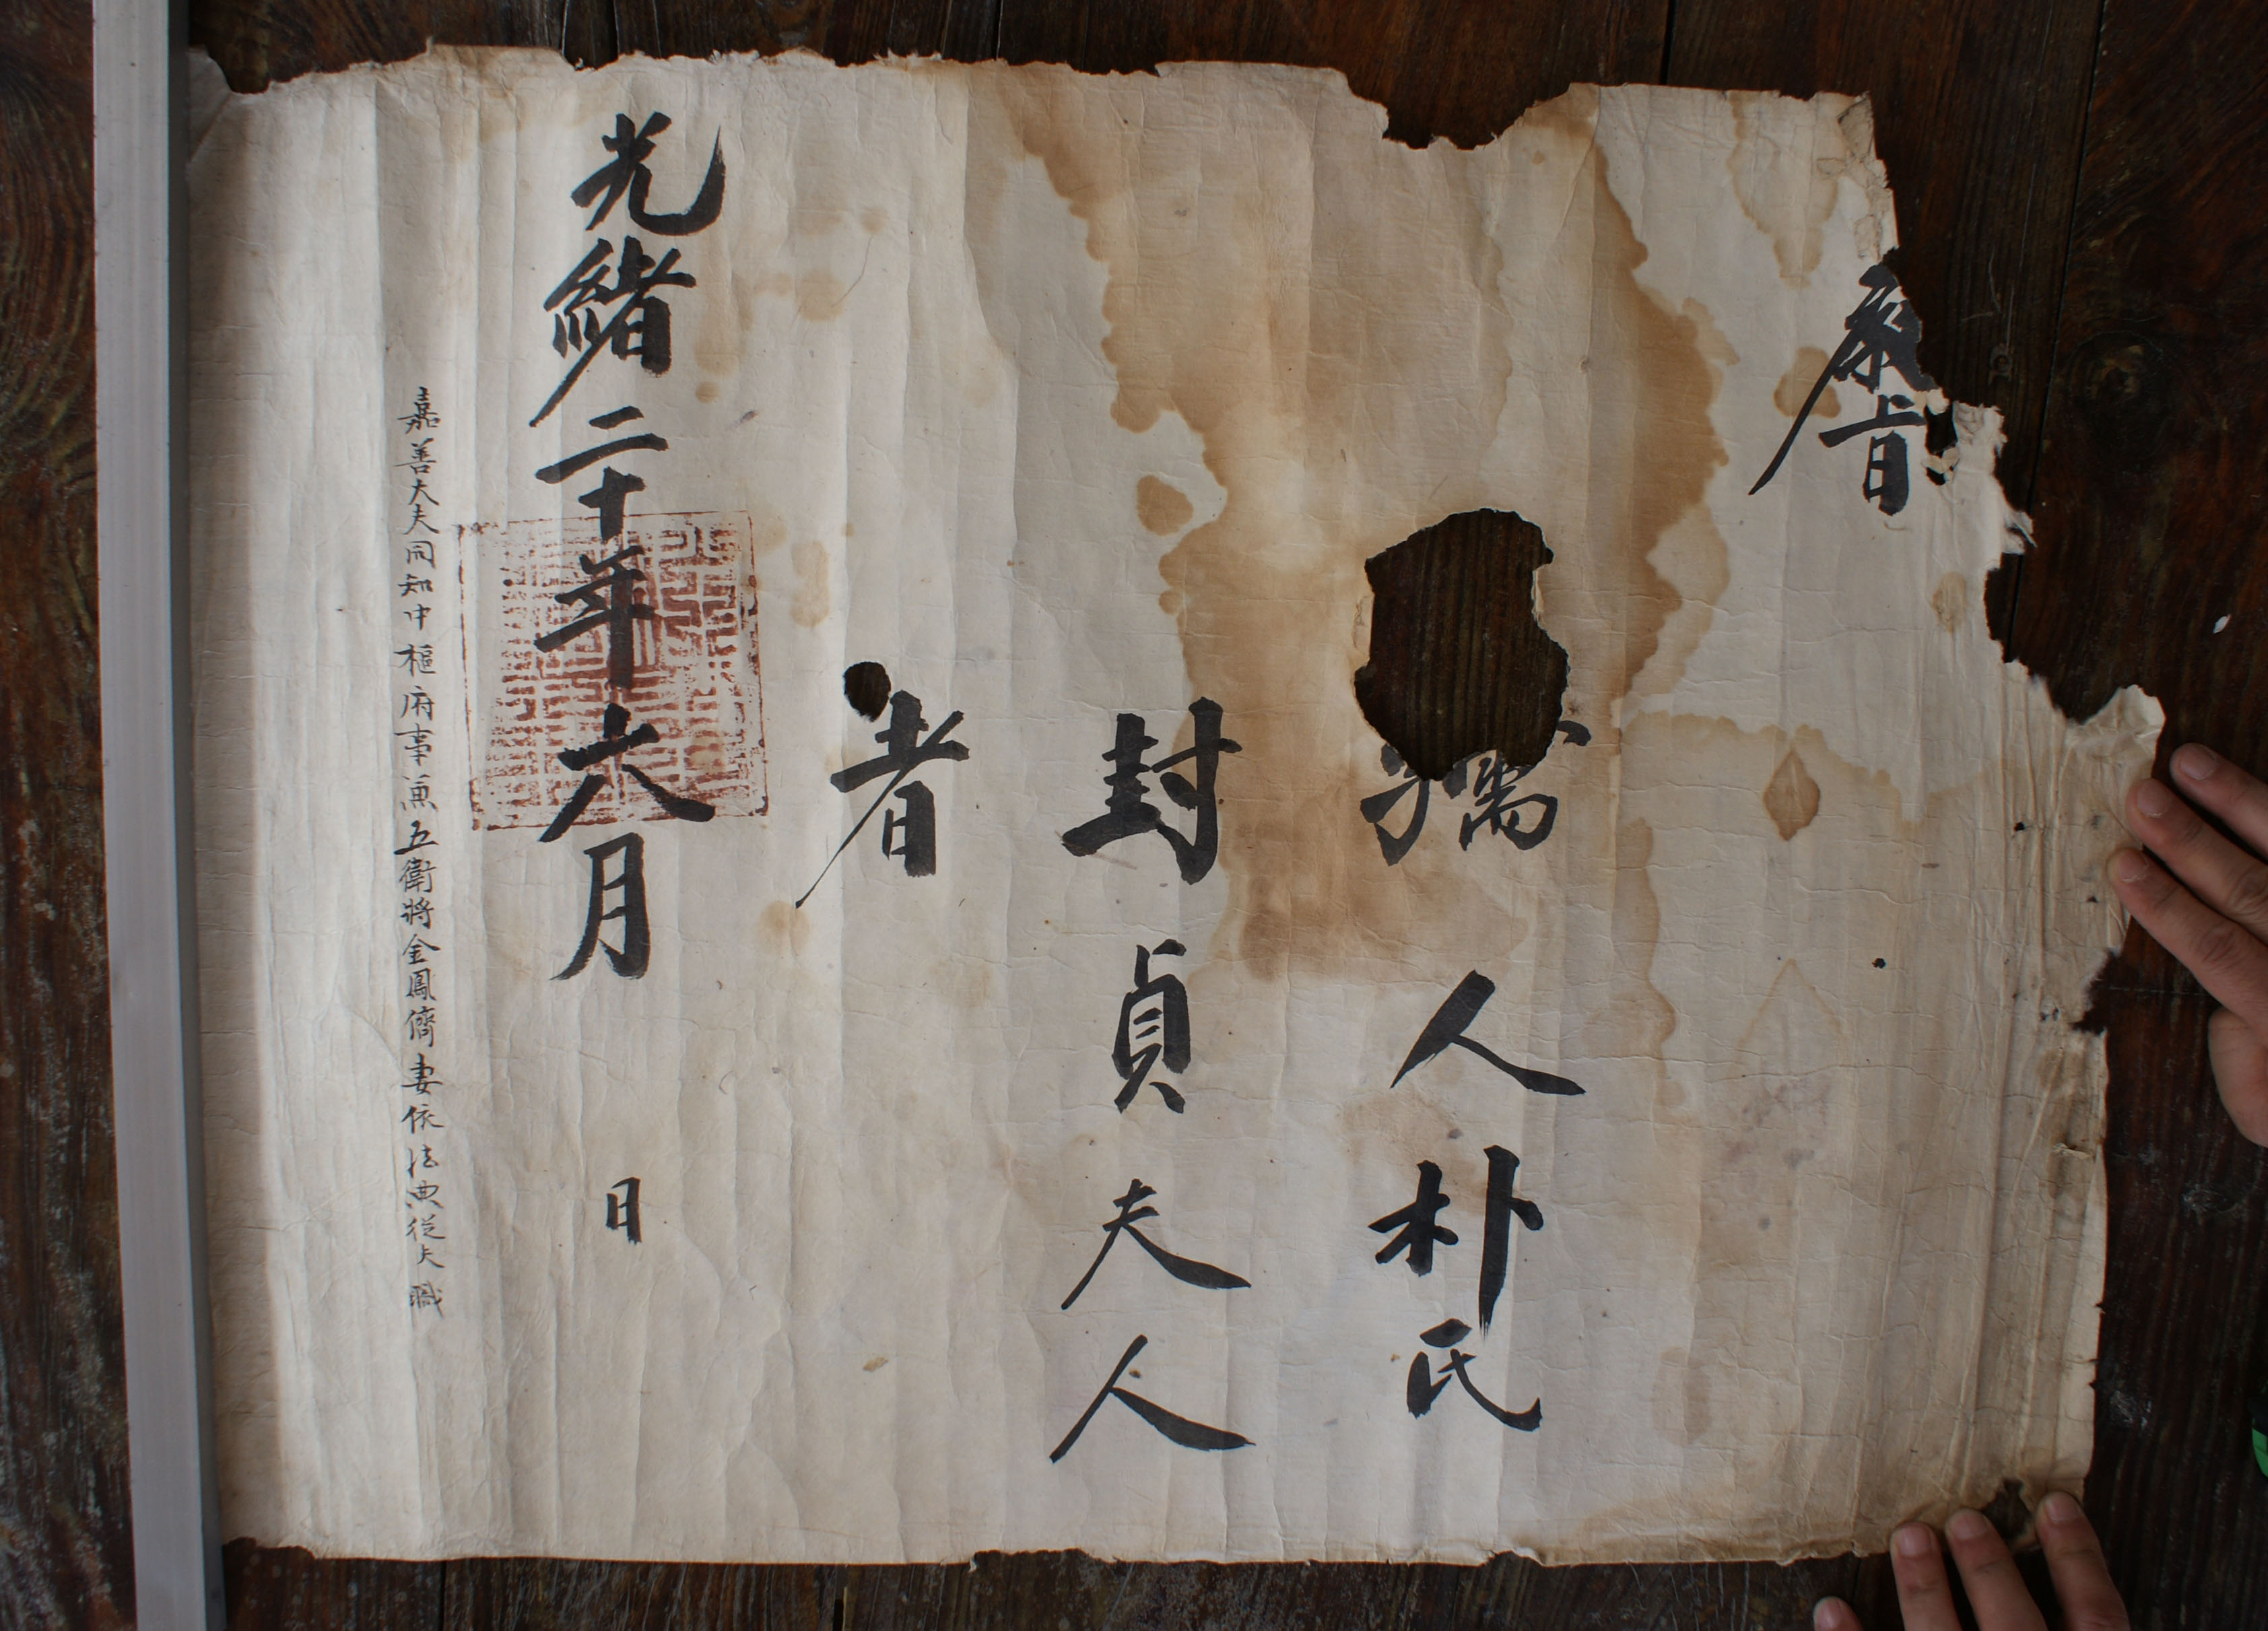 敎旨
孺人朴氏
封貞夫人
者
光緒二十年六月 日
嘉善大夫同知中樞府事兼五衛將金鳳儕妻依法典從夫職